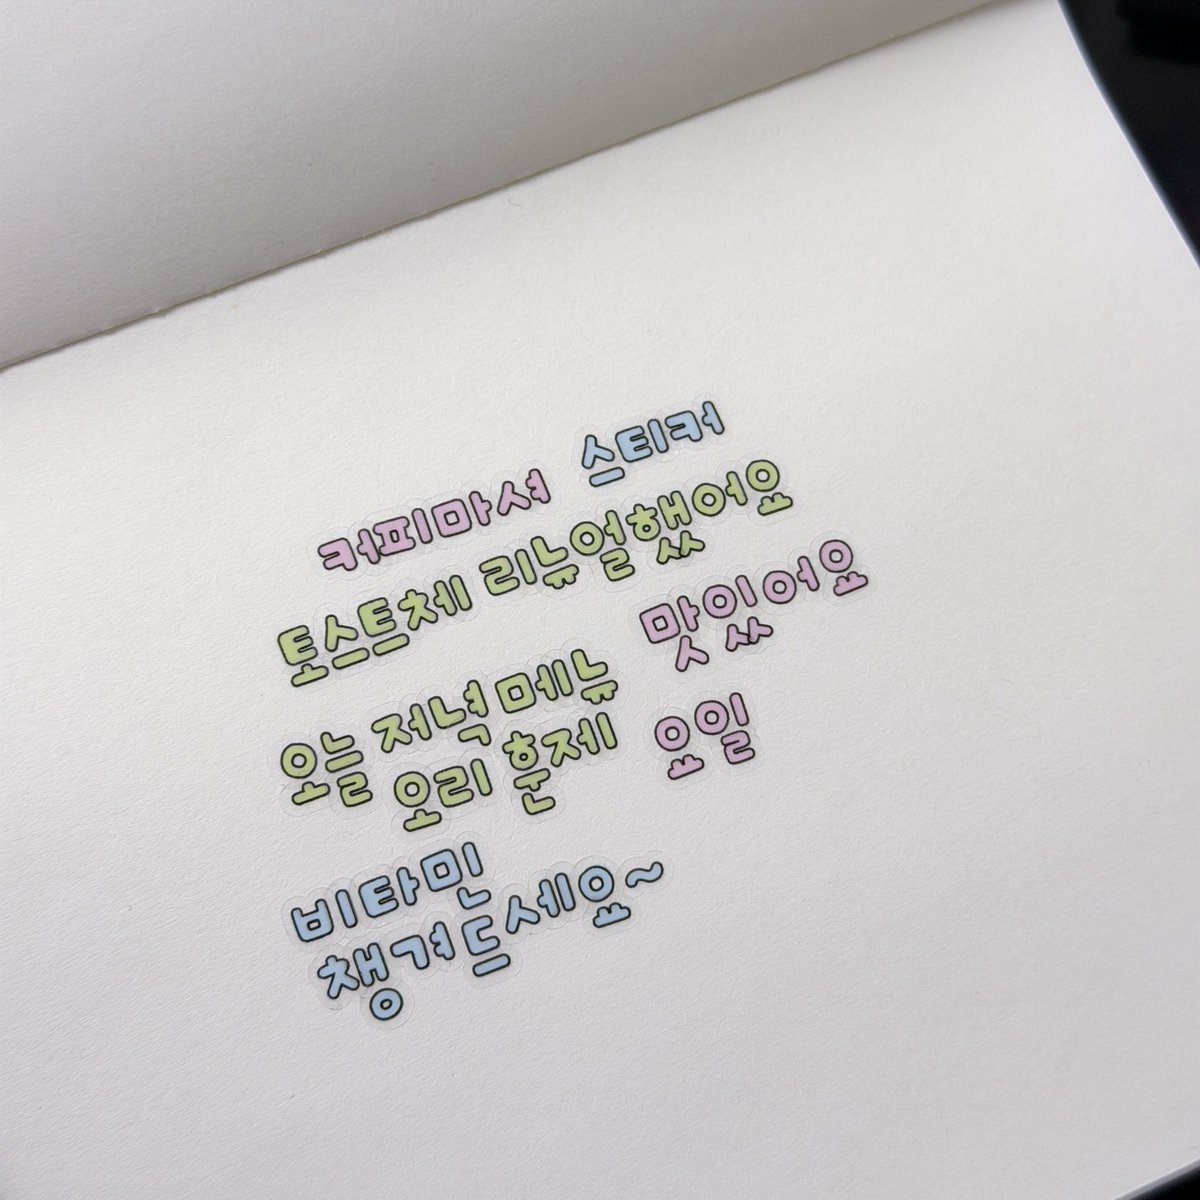 커피마셔 스티커
토스트체 리뉴얼했어요
오늘 저녁 메뉴 맛있어요
오리 훈제 요일
비타민
챙겨드세요~